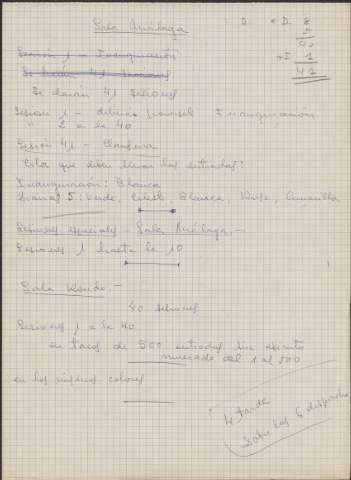 Sala Arriaga
D. D. 8
5
40
+I 1
41
Sesion 1 - Inauguración
Se darán 41 sesiones
Se darán 41 sesiones
Sesion 1 - Inauguración
" 2 a la 40
Sesión 41 - Clausura
Color que deben llevar las entradas:
Inauguración: Blanca
5: Verde, Celeste, Blanca, Rosa, Amarilla
Sesiones especiales - Sala Arriaga.-
Sesiones 1 hasta la 10
Sala .-
40 sesiones
Sesiones 1 a la 40
en tacos de 500 entradas sin asiento
numerado del 1 al 500
en los mismos colores
4 tarde
Sobre las 6